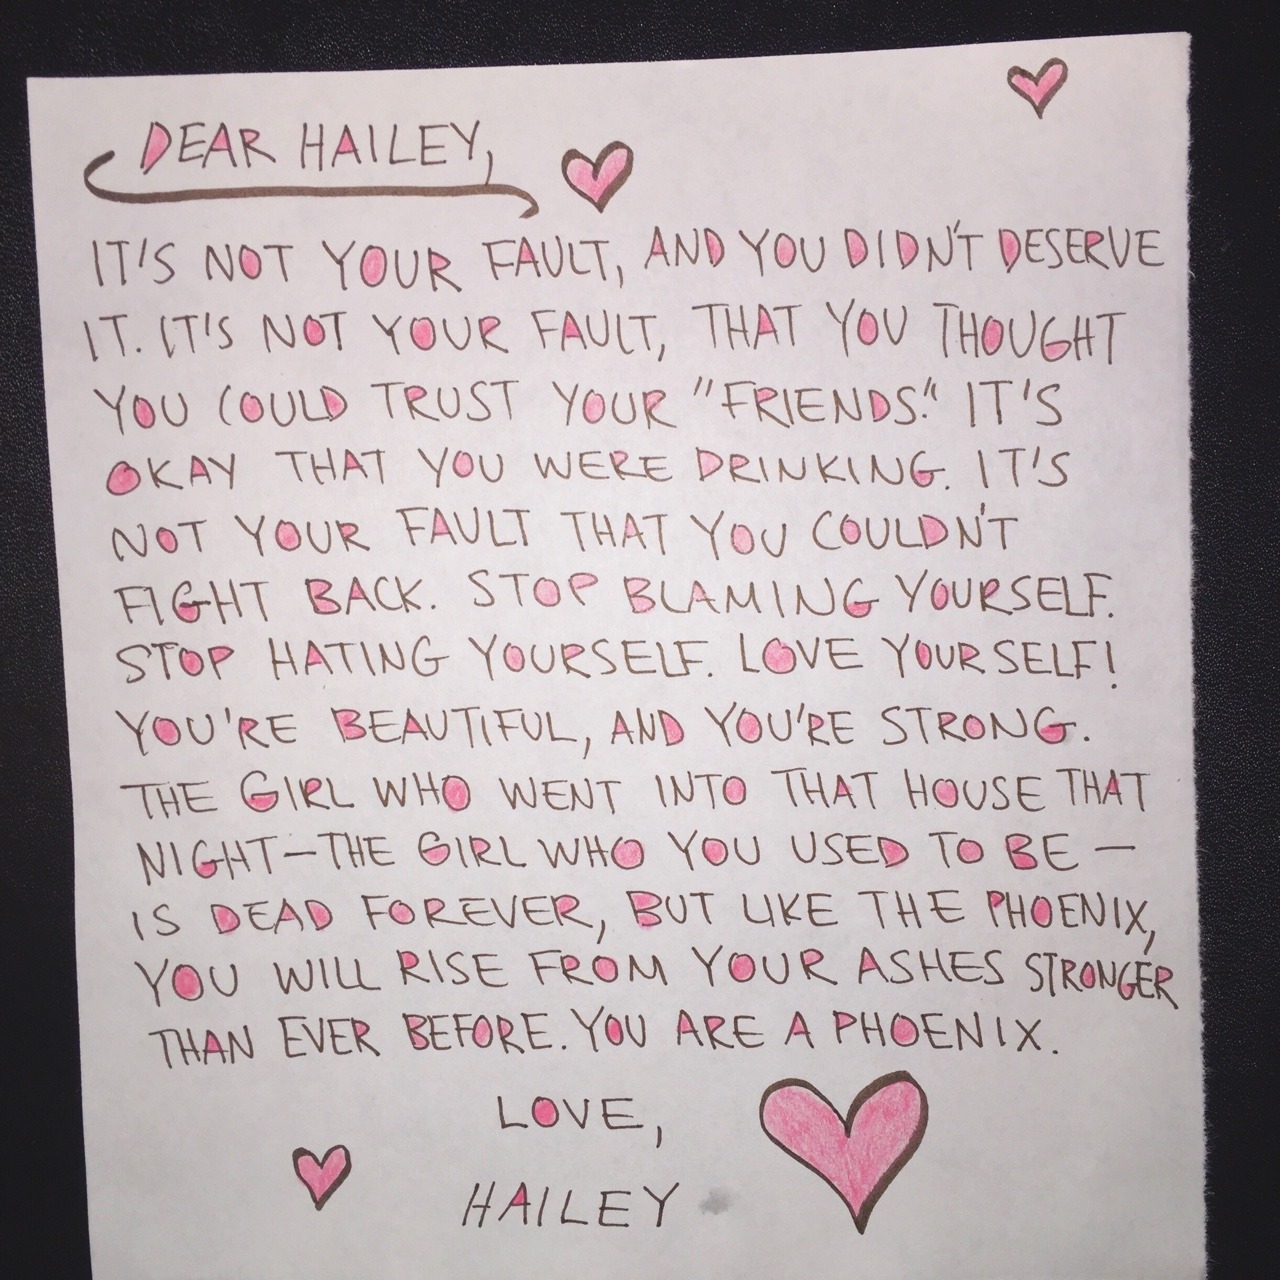 DEAR HAILEY,
IT'S NOT YOUR FAULT, AND YOU DIDN'T DESERVE
IT. IT'S NOT YOUR FAULT, THAT YOU THOUGHT
YOU COULD TRUST YOUR "FRIENDS." IT'S
OKAY THAT YOU WERE DRINKING. IT'S
NOT YOUR FAULT THAT YOU COULDN'T
FIGHT BACK. STOP BLAMING YOURSELF.
STOP HATING YOURSELF. LOVE YOURSELF!
YOU'RE BEAUTIFUL, AND YOU'RE STRONG.
THE GIRL WHO WENT INTO THAT HOUSE THAT
NIGHT—THE GIRL WHO YOU USED TO BE—
IS DEAD FOREVER, BUT LIKE THE PHOENIX,
YOU WILL RISE FROM YOUR ASHES STRONGER
THAN EVER BEFORE. YOU ARE A PHOENIX.
LOVE,
HAILEY